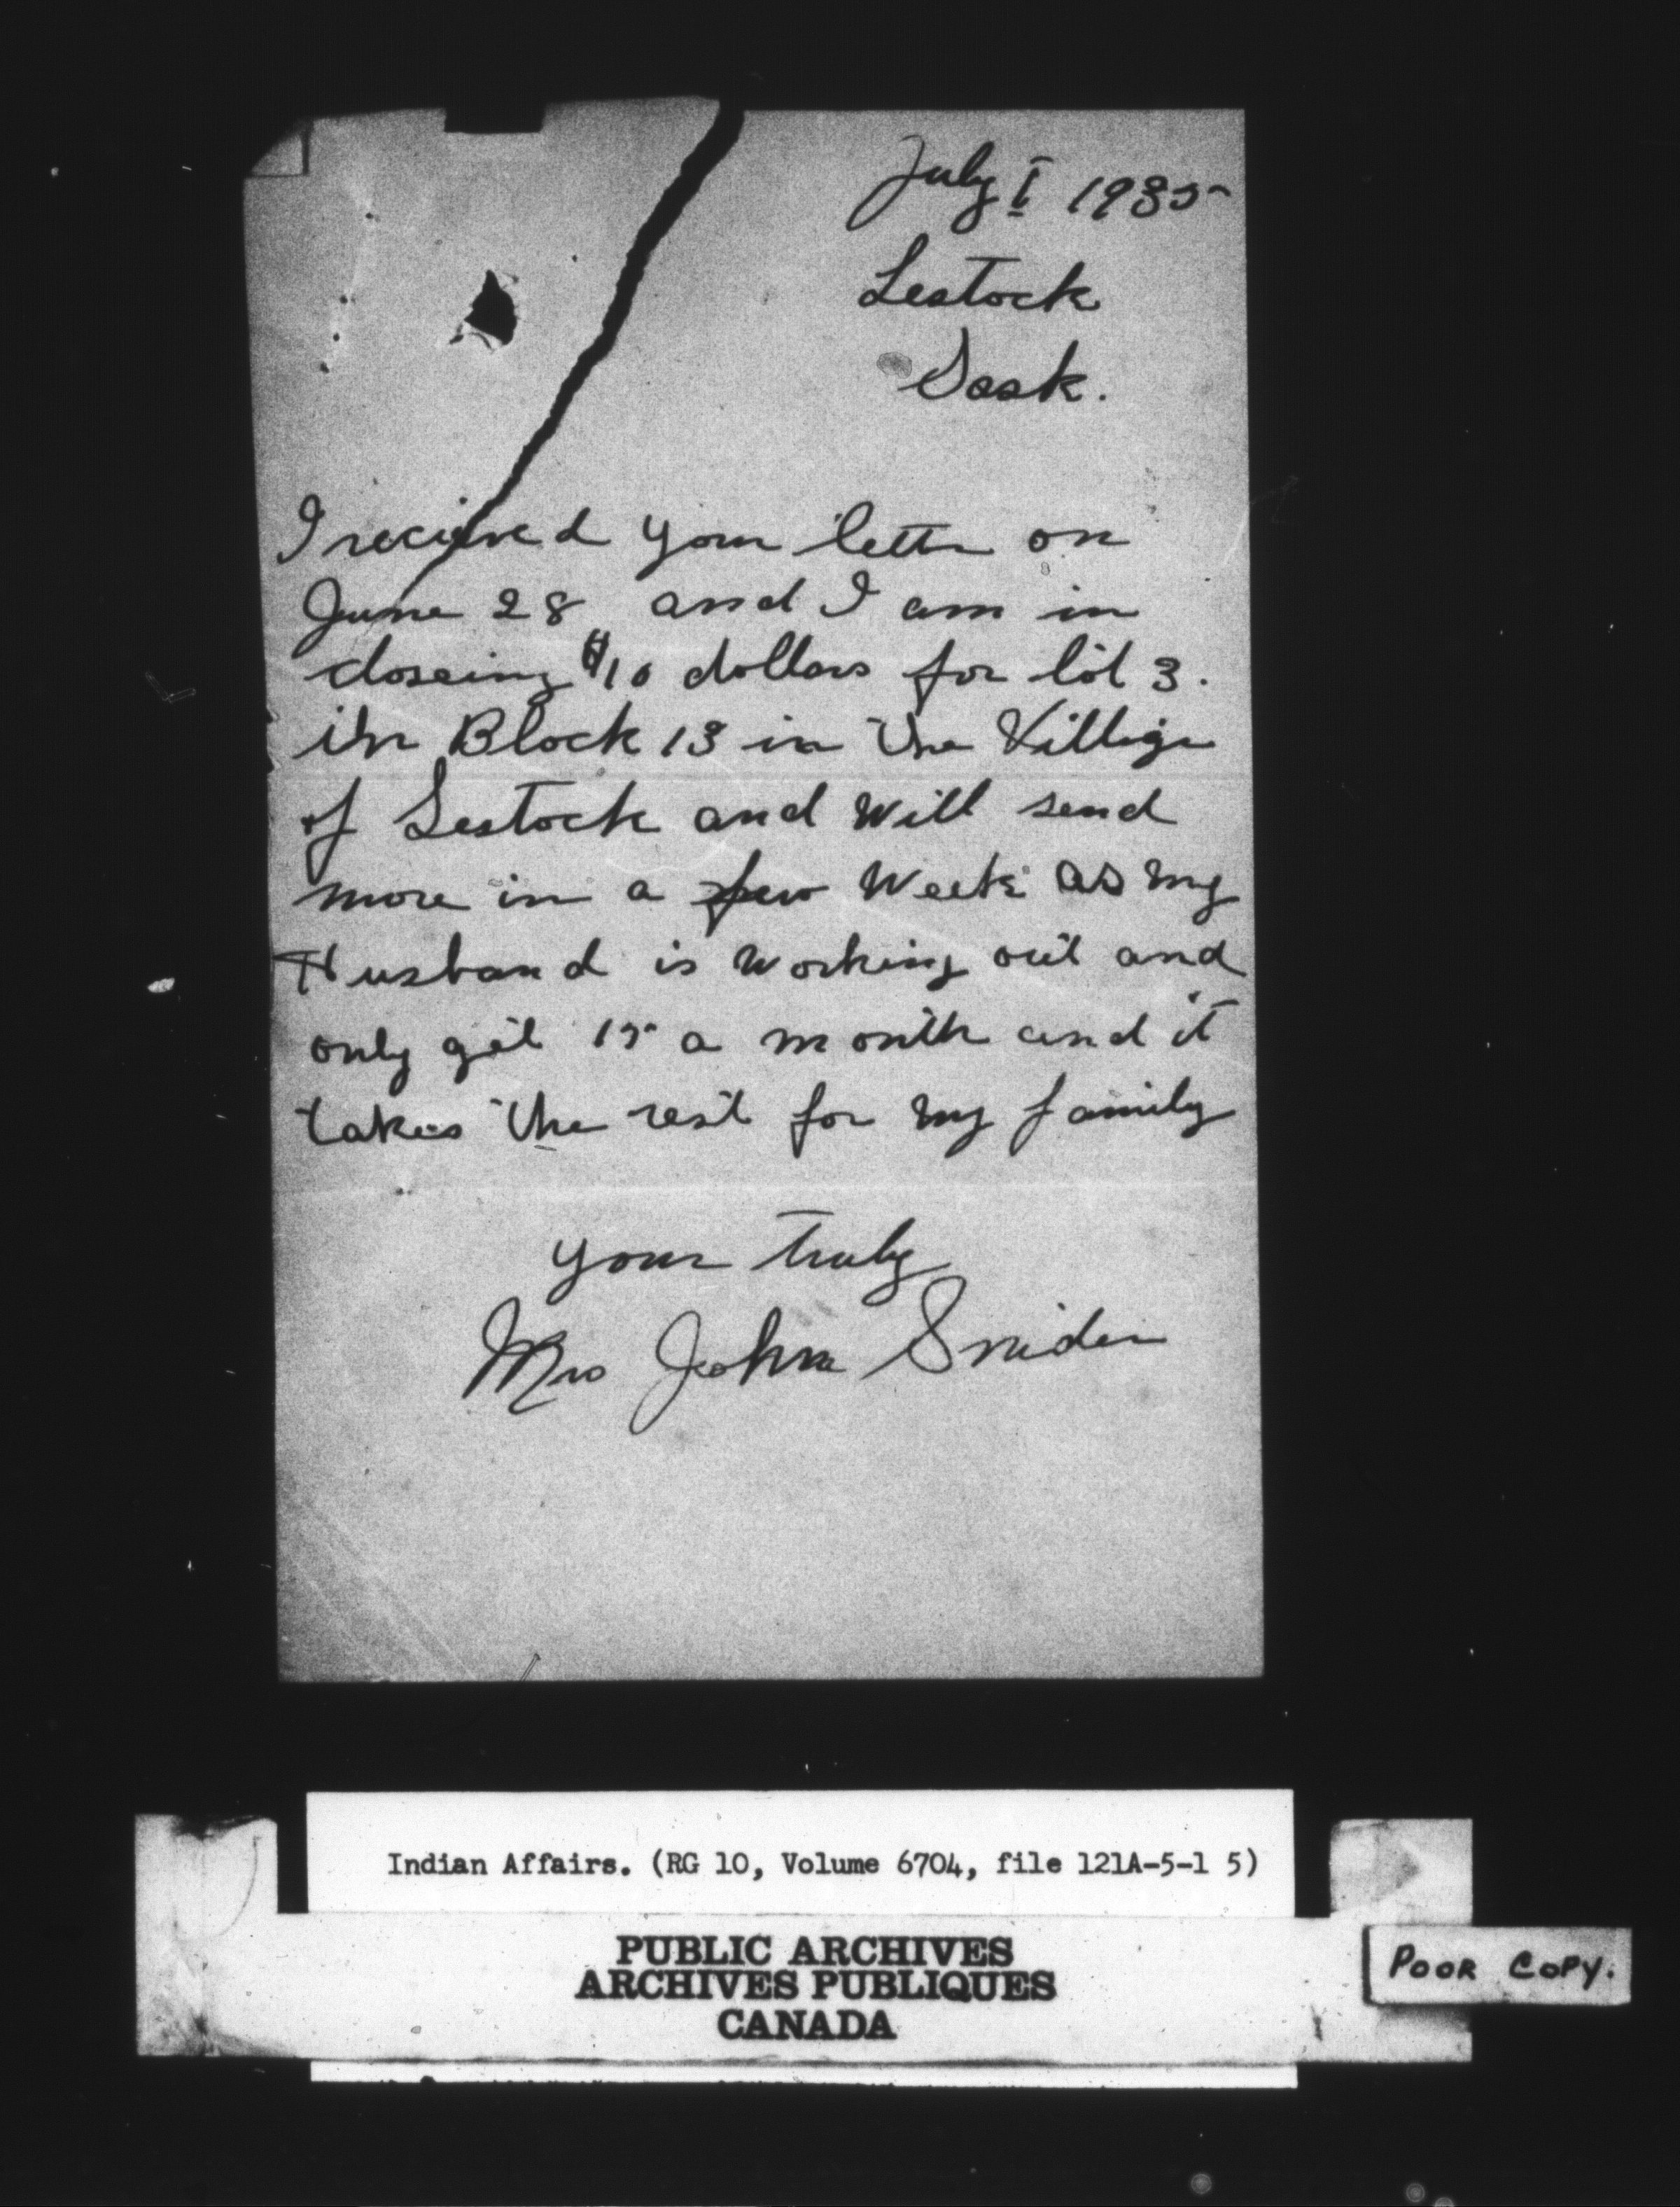 July 1 1935
Lestock
Sask.
I recieved your letter on
June 28 and I am in
closeing $10 dollars for lot 3.
in Block 13 in the Villige
of Lestock and Will send
more in a few Weeks as my
Husband is Working out and
only get 15 a month and it
takes the rest for my family
your truly
Mrs John Snider
Indian Affairs. (RG 10, Volume 6704, file 121A-5-1 5)
PUBLIC ARCHIVES
ARCHIVES PUBLIQUES
CANADA
POOR COPY.